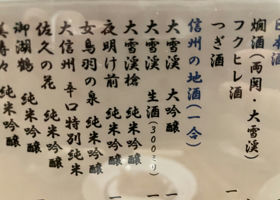 燗酒(両関・大雪渓)
フクヒレ酒
つぎ酒
信州の地酒(一合)
大雪渓 大吟醸 一
大雪渓 生酒(300ミリ) 一
大雪渓槍 純米吟醸 一
夜明け前 純米吟醸
女鳥羽の泉 純米吟醸
大信州 辛口特別純米
佐久の花 純米吟醸
御湖鶴 純米吟醸
美寿々 純米吟醸